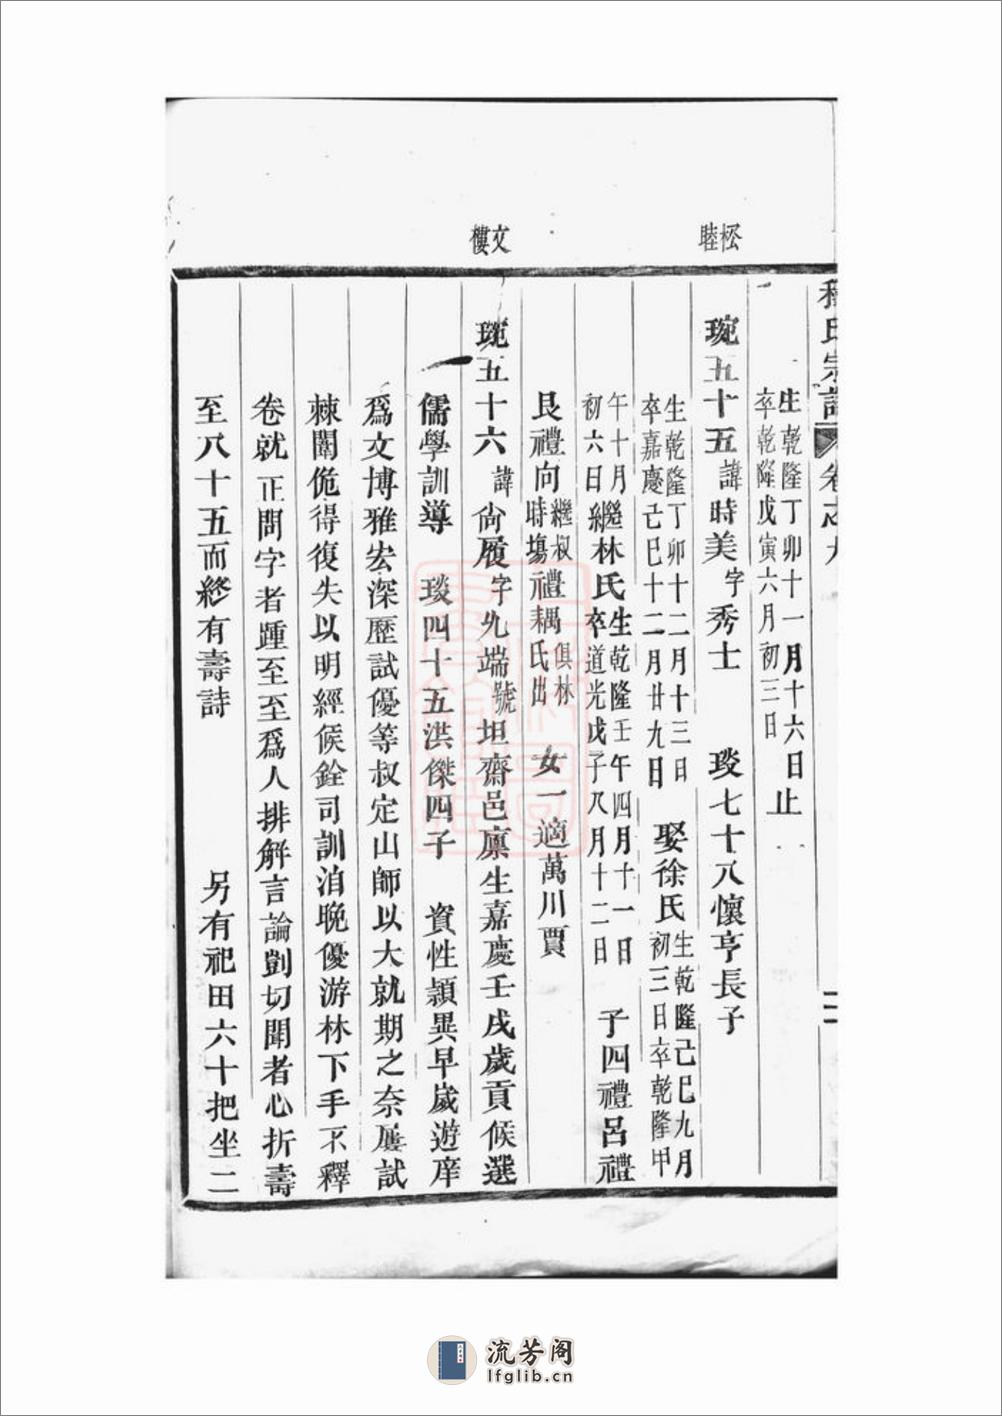 程氏宗譜 卷之九
生乾隆丁卯十一月十六日止
卒乾隆戊寅六月初三日
松
睦
琬五十五諱時美字秀士 琰七十八懷亨長子
生乾隆丁卯十二月十三日
卒嘉慶己巳十二月廿九日
娶徐氏
生乾隆己巳九月
初三日卒乾隆甲
午十月
初六日
繼林氏
生乾隆壬午四月十一日
卒道光戊子八月十二日
子四禮呂禮
艮禮向
繼叔
時塲
禮耦
俱林
氏出
女一適萬川賈
文
樓
琬五十六諱尙履字允端號坦齋邑廩生嘉慶壬戌歲貢候選
儒學訓導 琰四十五洪傑四子 資性穎異早歲遊庠
爲文博雅宏深歷試優等叔定山師以大就期之奈屢試
棘闈佹得復失以明經候銓司訓洎晚優游林下手不釋
卷就正問字者踵至至爲人排解言論剴切聞者心折壽
至八十五而終有壽詩 另有祀田六十把坐二
流芳阁
lfglib.cn